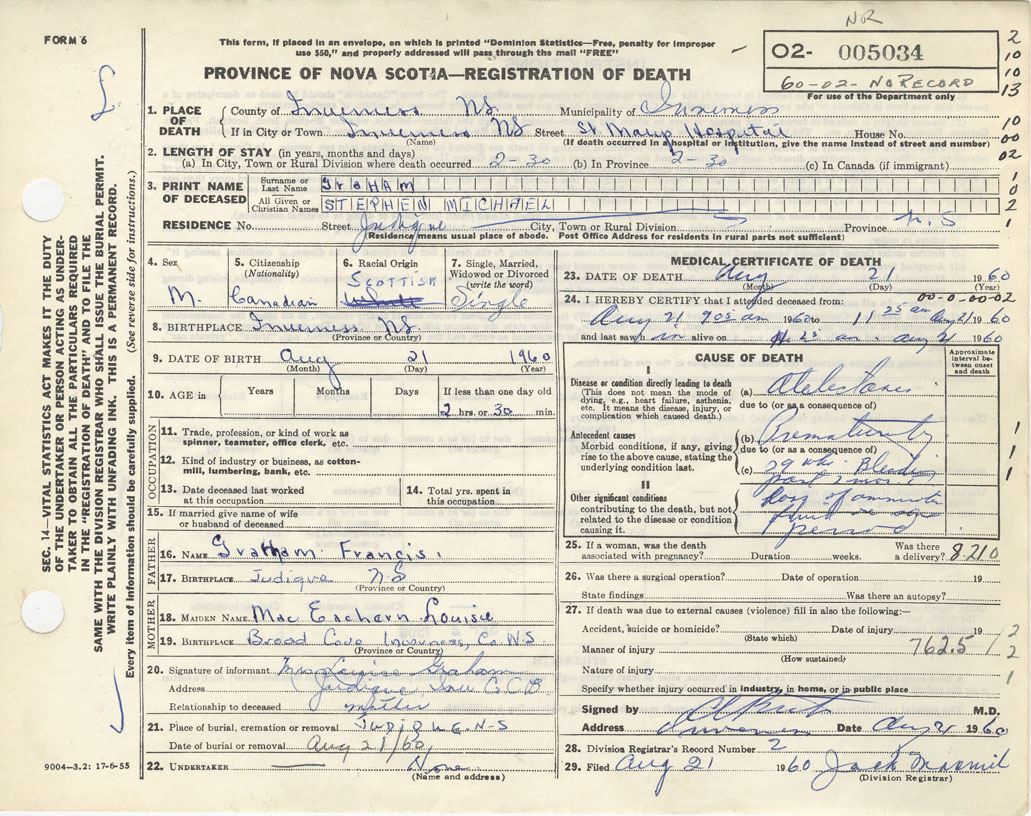 NR
FORM 6
This form, if placed in an envelope, on which is printed "Dominion Statistics—Free, penalty for improper
use $50," and properly addressed will pass through the mail "FREE"
O2- 005034
60-02- NO RECORD
For use of the Department only
2
10
10
13
PROVINCE OF NOVA SCOTIA—REGISTRATION OF DEATH
1. PLACE OF DEATH
County of Inverness NS. Municipality of Inverness
If in City or Town Inverness NS Street St Marys Hospital House No.
(Name) (If death occurred in a hospital or institution, give the name instead of street and number)
10
00
02
2. LENGTH OF STAY (in years, months and days)
(a) In City, Town or Rural Division where death occurred 2-30 (b) In Province 2-30 (c) In Canada (if immigrant)
3. PRINT NAME OF DECEASED
Surname or Last Name GraHAM
All Given or Christian Names STEPHEN MICHAEL
1
0
2
1
RESIDENCE No. Street Judique City, Town or Rural Division Province N.S
(Residence means usual place of abode. Post Office Address for residents in rural parts not sufficient)
4. Sex M.
5. Citizenship (Nationality) Canadian
6. Racial Origin SCOTTISH
7. Single, Married, Widowed or Divorced (write the word) Single
8. BIRTHPLACE Inverness NS.
(Province or Country)
9. DATE OF BIRTH Aug 21 1960
(Month) (Day) (Year)
10. AGE in Years Months Days If less than one day old
2 hrs. or 30 min.
OCCUPATION
11. Trade, profession, or kind of work as
spinner, teamster, office clerk, etc.
12. Kind of industry or business, as cotton-
mill, lumbering, bank, etc.
13. Date deceased last worked
at this occupation
14. Total yrs. spent in
this occupation
15. If married give name of wife
or husband of deceased
FATHER
16. NAME Graham Francis.
17. BIRTHPLACE Judique NS
(Province or Country)
MOTHER
18. MAIDEN NAME Mac Eachern Louise
19. BIRTHPLACE Broad Cove Inverness, Co. N.S.
(Province or Country)
20. Signature of informant Mrs Louise Graham
Address Judique Inv
Relationship to deceased mother
21. Place of burial, cremation or removal JUDIQUE. N-S
Date of burial or removal Aug 21/60
22. UNDERTAKER None
(Name and address)
MEDICAL CERTIFICATE OF DEATH
23. DATE OF DEATH Aug 21 1960
(Month) (Day) (Year)
00-0-00-02
24. I HEREBY CERTIFY that I attended deceased from:
Aug 21 905 am 1960 to 11 25 am Aug 21 1960
and last saw h im alive on 11.25 am. Aug 21 1960
CAUSE OF DEATH
Approximate interval between onset and death
I
Disease or condition directly leading to death
(This does not mean the mode of
dying, e.g., heart failure, asthenia,
etc. It means the disease, injury, or
complication which caused death.)
(a) Atelectasis
due to (or as a consequence of)
Antecedent causes
Morbid conditions, if any, giving
rise to the above cause, stating the
underlying condition last.
(b) Prematurity
due to (or as a consequence of)
(c) 29 wks. Bleeding
past 2 mos.
1
1
1
II
Other significant conditions
contributing to the death, but not
related to the disease or condition
causing it.
loss of amniotic
fluid
period
25. If a woman, was the death
associated with pregnancy? Duration weeks. Was there
a delivery? 8210
26. Was there a surgical operation? Date of operation 19
State findings Was there an autopsy?
27. If death was due to external causes (violence) fill in also the following:—
Accident, suicide or homicide? Date of injury 19
(State which)
Manner of injury 762.5
(How sustained)
Nature of injury
2
1
2
1
Specify whether injury occurred in industry, in home, or in public place
Signed by M.D.
Address Inverness Date Aug 21 1960
28. Division Registrar's Record Number 2
29. Filed Aug 21 1960
(Division Registrar)
SEC. 14—VITAL STATISTICS ACT MAKES IT THE DUTY
OF THE UNDERTAKER OR PERSON ACTING AS UNDER-
TAKER TO OBTAIN ALL THE PARTICULARS REQUIRED
IN THE "REGISTRATION OF DEATH" AND TO FILE THE
SAME WITH THE DIVISION REGISTRAR WHO SHALL ISSUE THE BURIAL PERMIT.
WRITE PLAINLY WITH UNFADING INK. THIS IS A PERMANENT RECORD.
Every item of information should be carefully supplied. (See reverse side for instructions.)
9004—3.2: 17-6-55